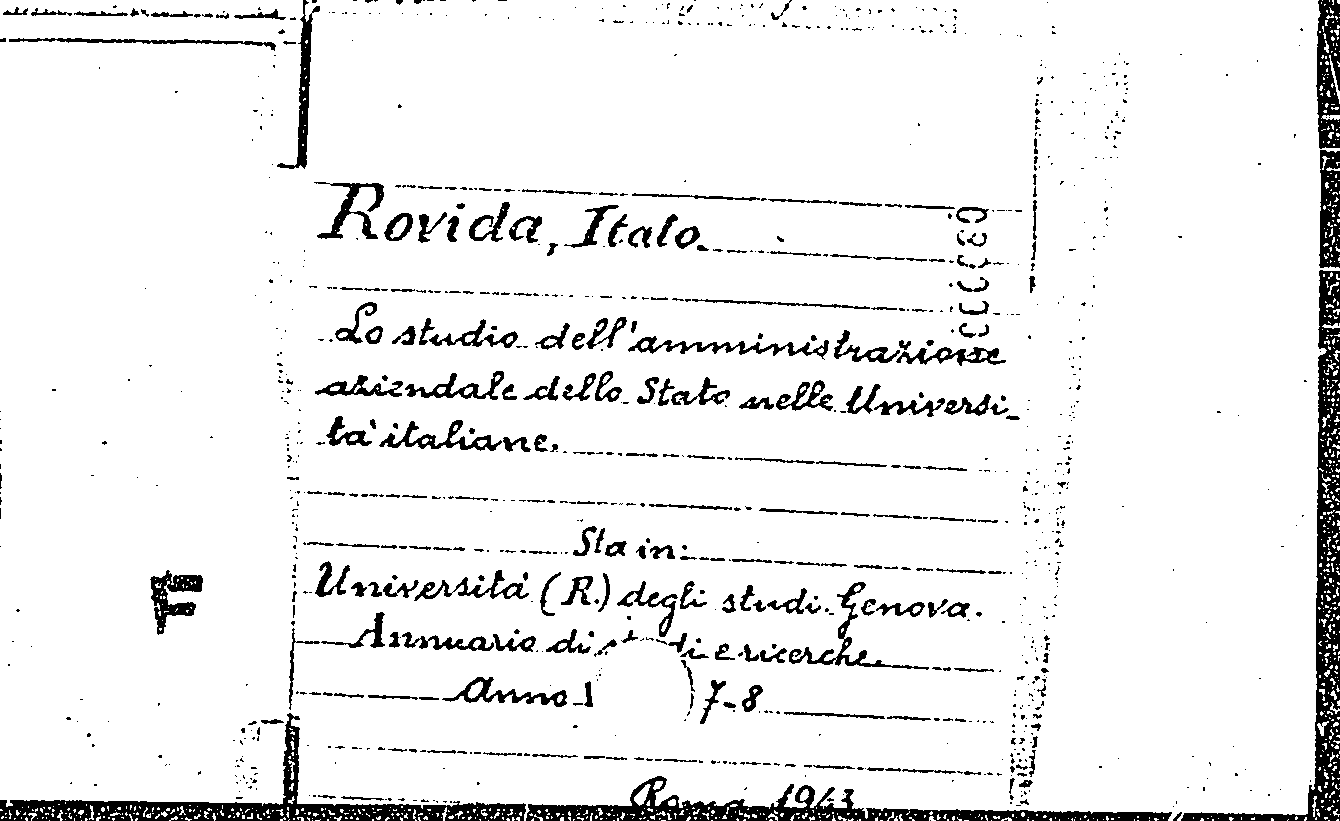 Rovida, Italo.
Lo studio dell'amministrazione
aziendale dello Stato nelle Universi-
tà italiane.
Sta in:
Università (R.) degli studi. Genova.
Annuario di e ricerche.
Anno 7-8
F
Roma 1943